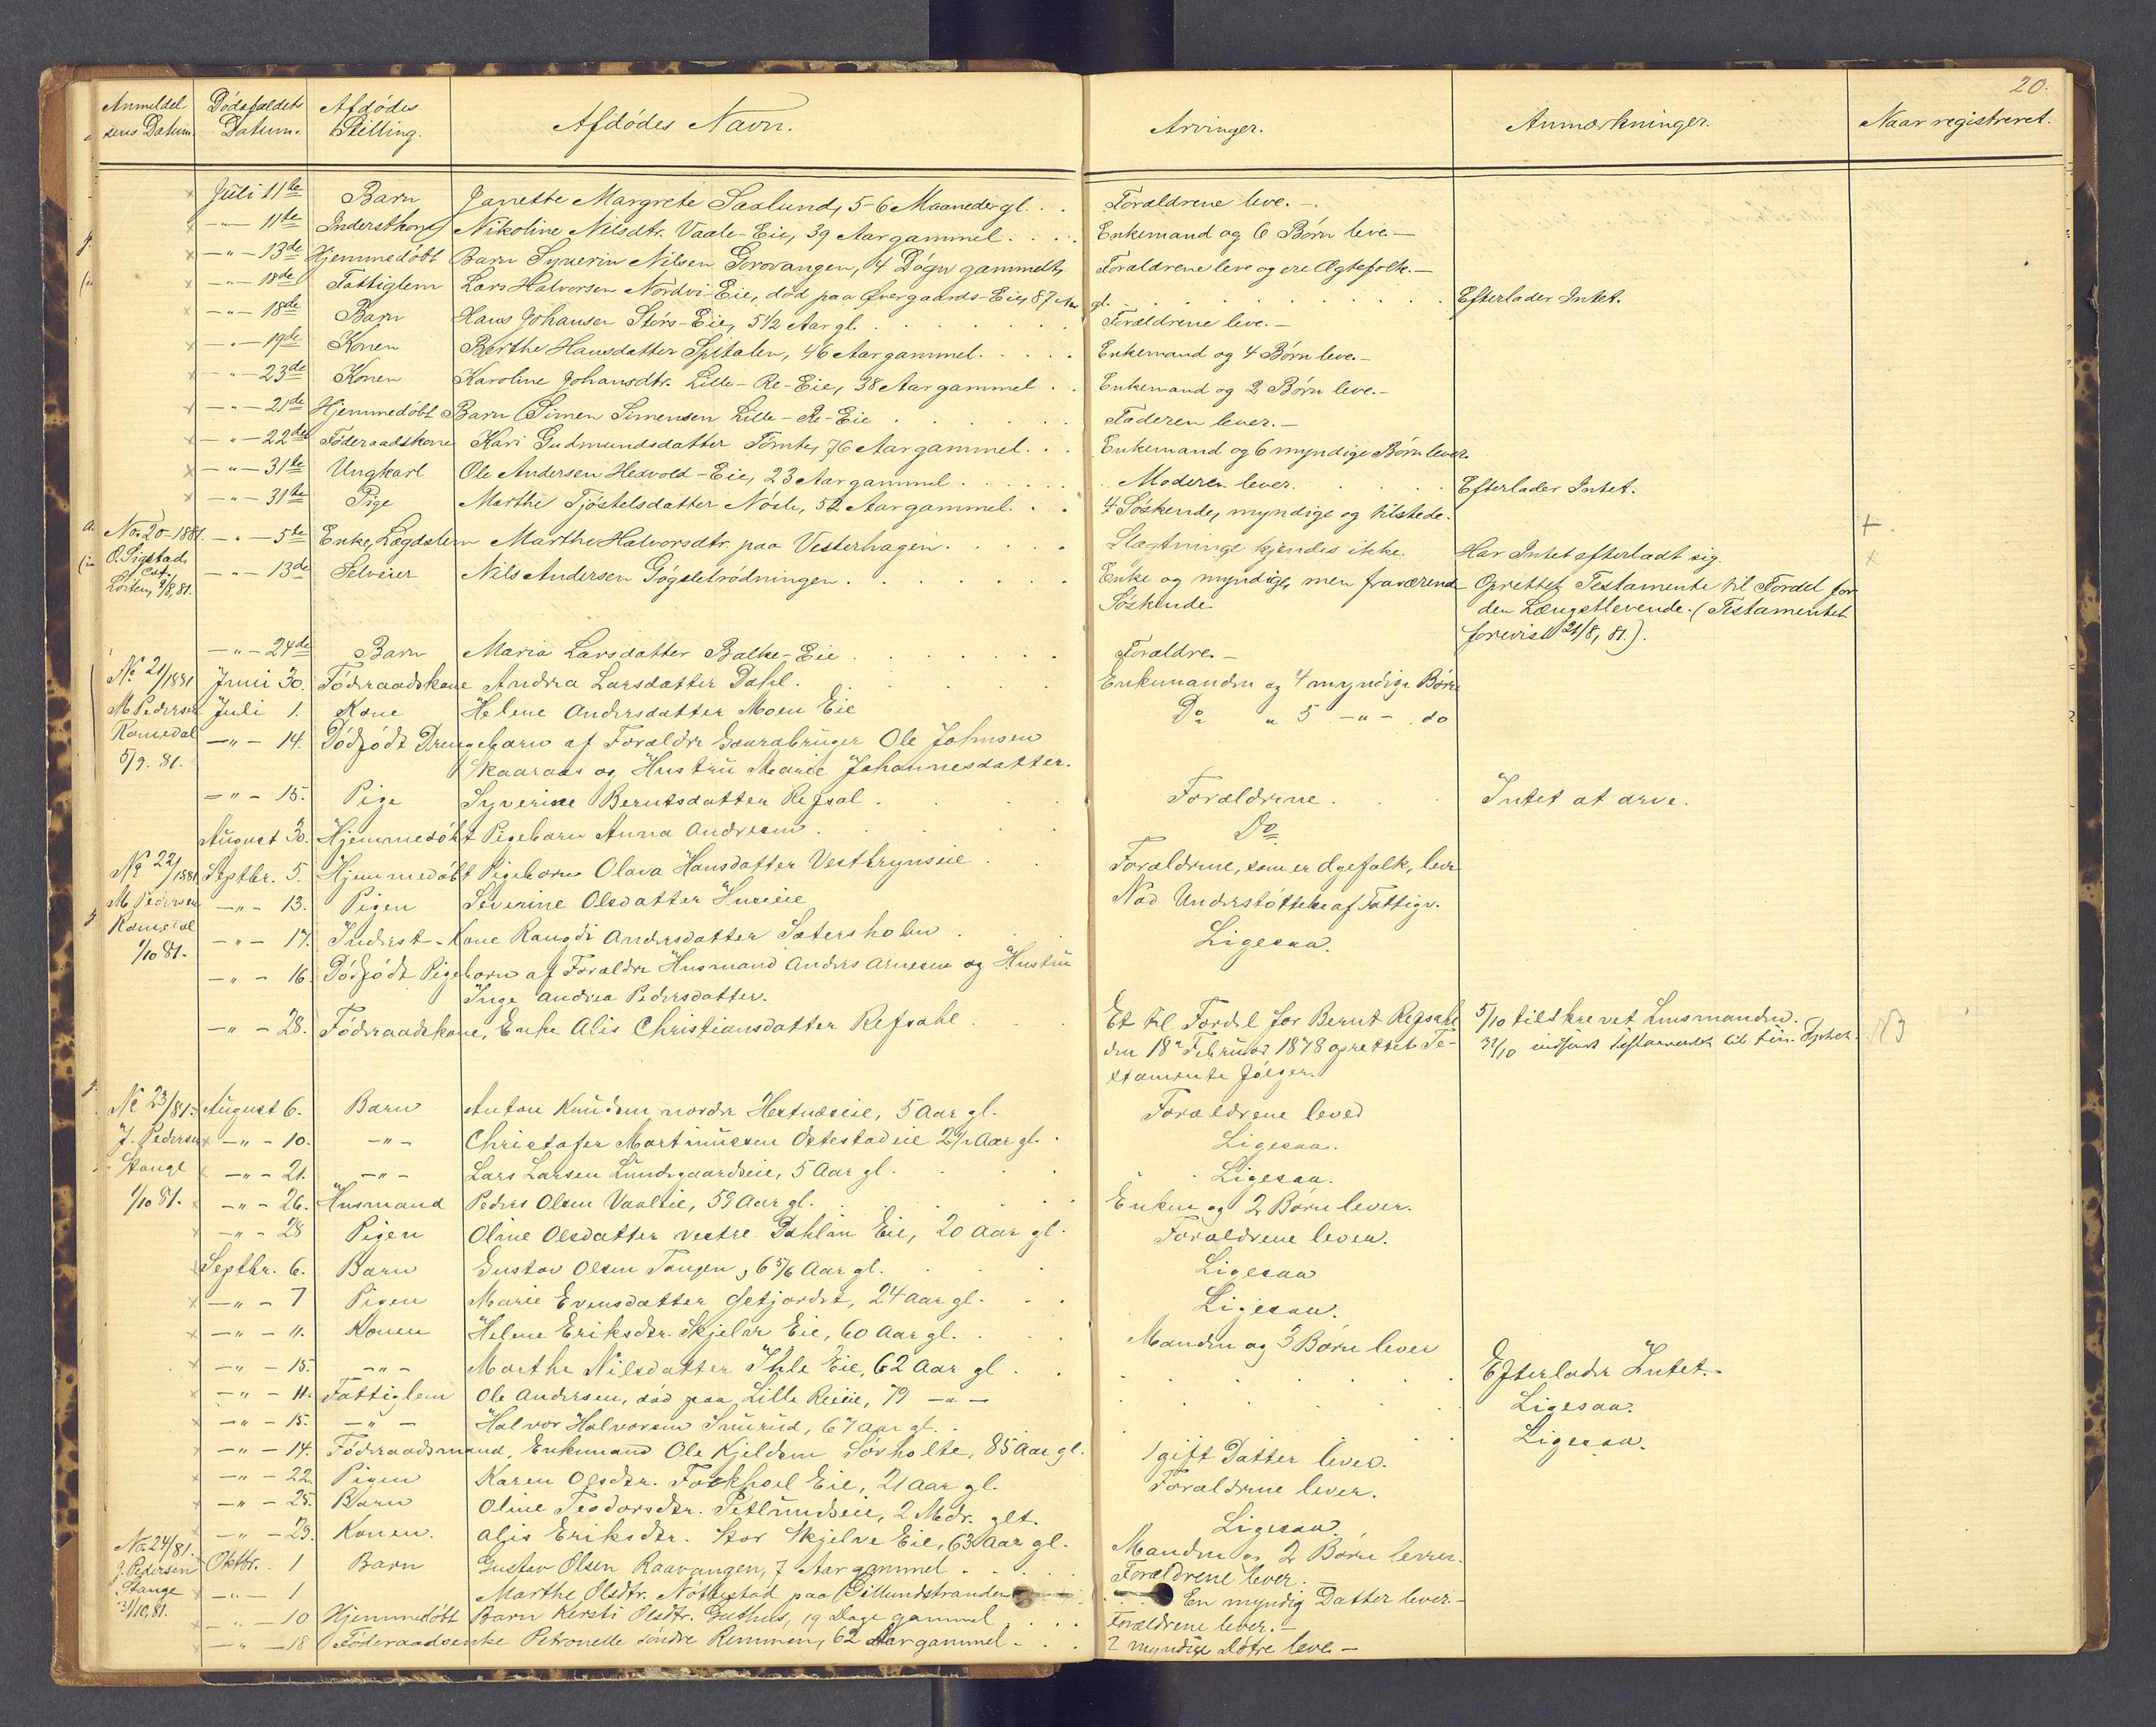 20.
Anmeldel- Dödsfaldets Afdödes
sens Datum. Datum. Stilling. Afdödes Navn. Arvinger. Anmærkninger. Naar registreret.
Juli 11te Barn Janette Margrete Saxlund, 5-6 Maaneder gl. Forældrene leve.-
-"- 11te Inderstkone Nikoline Nilsdtr. Vaale-Eie, 39 Aar gammel Enkemand og 6 Börn leve.-
-"- 13de Hjemmedöbt Barn Syverin Nilsen Gorovangen, 4 Dögn gammelt, Forældrene leve og ere Ægtefolk.-
-"- 18de Fattiglem Lars Halvorsen Nordvi-Eie, död paa Övergaards-Eie, 87 Aar gl. Efterlader Intet.
-"- 18de Barn Hans Johansen Störs-Eie, 5 1/2 Aar gl. Forældrene leve.-
-"- 19de Konen Berthe Hansdatter Spitalen, 46 Aar gammel. Enkemand og 4 Börn leve.-
-"- 23de Konen Karoline Johansdtr. Lille-Re-Eie, 38 Aar gammel Enkemand og 2 Börn leve.-
-"- 21de Hjemmedöbt Barn Simen Simensen Lille-Re-Eie Faderen lever.-
-"- 22de Föderaadskone Kari Gudmundsdatter Tomte, 76 Aar gammel. Enkemand og 6 myndige Börn lever.
-"- 31te Ungkarl Ole Andersen Hexvold-Eie, 23 Aar gammel Moderen lever. Efterlader Intet.
-"- 31te Pige Marthe Tjöstelsdatter Nösle, 52 Aar gammel. 4 Söskende, myndige og tilstede.
No. 20-1881. -"- 5te Enke, Lægdslem Marthe Halvorsdtr. paa Vesterhagen. Slægtninge kjendes ikke. Har Intet efterladt sig.
O. Sigstad, -"- 13de Selveier Nils Andersen Gögsletrödningen. Enke og myndige, men fraværende Oprettet Testamente til Fordel for
Söskende. den Længstlevende. (Testamentet
Löiten, 2/8, 81. forevist 21/8, 81.).
-"- 24de Barn Maria Larsdatter Balke-Eie Forældre.-
No 21/1881 Juni 30. Föderaadskone Andrea Larsdatter Dahl. Enkemanden og 4 myndige Börn
M Pedersen Juli 1. Kone Helene Andersdatter Moen Eie Do " 5 -"- do
Romedal -"- 14. Dödfödt Drengebarn af Forældre Gaardbruger Ole Johnsen
5/9. 81. Skaaraas og Hustru Marie Johannesdatter.
-"- 15. Pige Syverine Berntsdatter Refsal. Forældrene. Intet at arve.
August 30. Hjemmedöbt Pigebarn Anna Andresen. Do
No 22/1881 Septbr. 5. Hjemmedöbt Pigebarn Olava Hansdatter Vestbrynseie Forældrene, som er Ægefolk, lever
M Pedersen -"- 13. Pigen Severine Olsdatter Huseeie Nød Understöttelse af Fattigv.
Romedal -"- 17. Inderst-Kone Rangdi Andersdatter Sætersholm Ligesaa.
1/10 81. -"- 16. Dödfödt Pigebarn af Forældre Husmand Anders Arnesen og Hustru
Inge Andrea Pedersdatter.
-"- 28. Föderaadskone, Enke Alis Christiansdatter Refsahl. Et til Fordel for Bernt Refsahl 5/10 tilskrevet Lensmanden.
den 18e Februar 1878 oprettet Te- 31/10 indsendt testamentet til
stamente fölger.
No 23/81. August 6. Barn Anton Knudsen nordre Hestnæseie, 5 Aar gl. Forældrene leved
J. Pedersen -"- 10. -"- Christofer Martinussen Ostestadeie 2 1/2 Aar gl. Ligesaa.
Stange -"- 21. -"- Lars Larsen Lundgaardseie, 5 Aar gl. Ligesaa.
1/10 81. -"- 26. Husmand Peders Olsen Vaaleie, 59 Aar gl. Enken og 2 Börn lever.
-"- 28 Pigen Oline Olsdatter vestre Dahlen Eie, 20 Aar gl. Forældrene lever.
Septbr. 6. Barn Gustav Olsen Tangen, 6 5/6 Aar gl. Ligesaa
-"- 7 Pigen Marie Evensdatter Gjetjordet, 24 Aar gl. Ligesaa.
-"- 11. Konen Helene Eriksdtr. Skjelve Eie, 60 Aar gl. Manden og 3 Börn lever
-"- 15. -"- Marthe Nilsdatter Ihle Eie, 62 Aar gl Efterlader Intet.
-"- 11. Fattiglem Ole Andersen, död paa Lille Reeie, 79 -"- Ligesaa.
-"- 15. -"- Halvor Halvorsen Snurud, 67 Aar gl. Ligesaa.
-"- 14. Föderaadsmand, Enkemand Ole Kjeldsen Sörholte, 85 Aar gl. 1 gift Datter lever.
-"- 22. Pigen Karen Olsdtr. Fokhoel Eie, 21 Aar gl. Forældrene lever.
-"- 25. Barn Oline Teodorsdtr. Petlundseie, 2 Mdr. glt. Ligesaa.
-"- 23. Konen. Alis Eriksdtr. Stor Skjelve Eie, 63 Aar gl. Manden og 2 Börn lever.
No. 24/81. Oktbr. 1 Barn Gustav Olsen Raavangen, 7 Aar gammel Forældrene lever.-
J. Pedersen -"- 1 Marthe Olsdtr. Nöttestad paa Gillundstranden En myndig Datter lever.-
Stange -"- 10 Hjemmedöbt Barn Kersti Olsdtr. Guthus, 19 Dage gammel Forældrene lever.-
31/10, 81. -"- 18 Föderaadsenke Petronelle söndre Remmen, 62 Aar gammel. 2 myndige Dötre leve.-